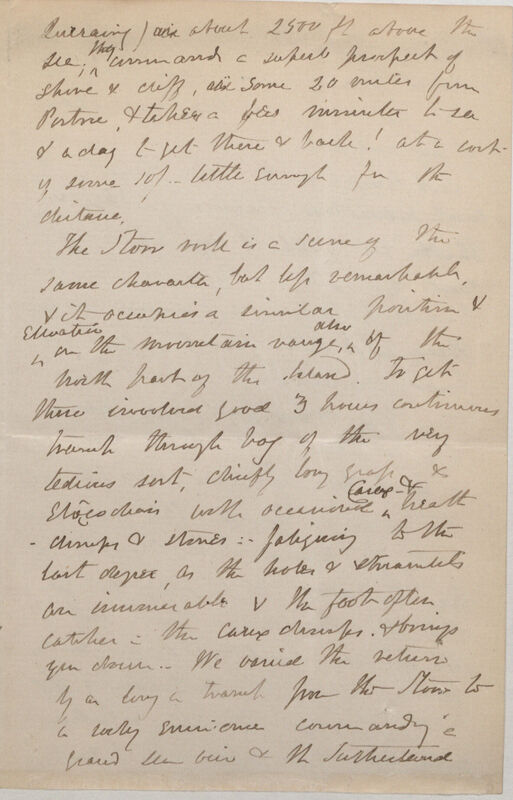 Quiraing) are about 2500 ft above the
sea, they command a superb prospect of
shore & cliff, are some 20 miles from
Portree, & takes a few minutes to see
& a day to get there & back! at a cost
of some 30/- little enough for the
distance.
The Storr rock is a scene of the
same character, but less remarkable,
& it occupies a similar position &
Elevation on the mountain range, also of the
North part of the Island. To get
there involved good 3 hours continuous
tramp through bog of the very
tedious sort, chiefly long grass & &
Eleocharis with occasional Carex & heath
- clumps & stones :- fatiguing to the
last degree, as the holes & streamlets
are innumerable & the foot often
catches in the Carex clumps & brings
you down.. We varied the return
by as long a tramp from the Storr to
a rocky eminence commanding a
grand sea view & the Sutherland